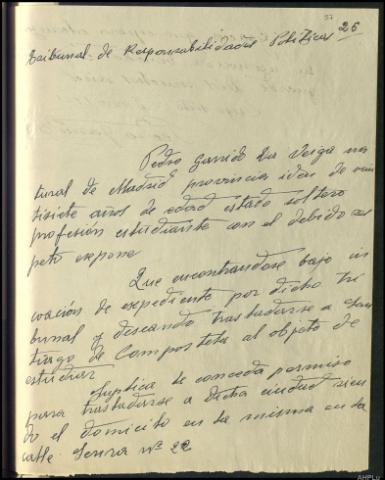 37
26
Tribunal de Responsabilidades Politicas
Pedro Garrido La Verga na
tural de Madrid provincia idem de vein
tisiete años de edad estado soltero
profesión estudiante con el debido res
peto expone
Que encontrandose bajo in
coación de expediente por dicho Tri
bunal y deseando trasladarse a San
tiago de Compostela al objeto de
estudiar
Suplica le conceda permiso
para trasladarse a dicha ciudad sien
do el domicilio en la misma en la
calle Senra nº 22
AHPLu